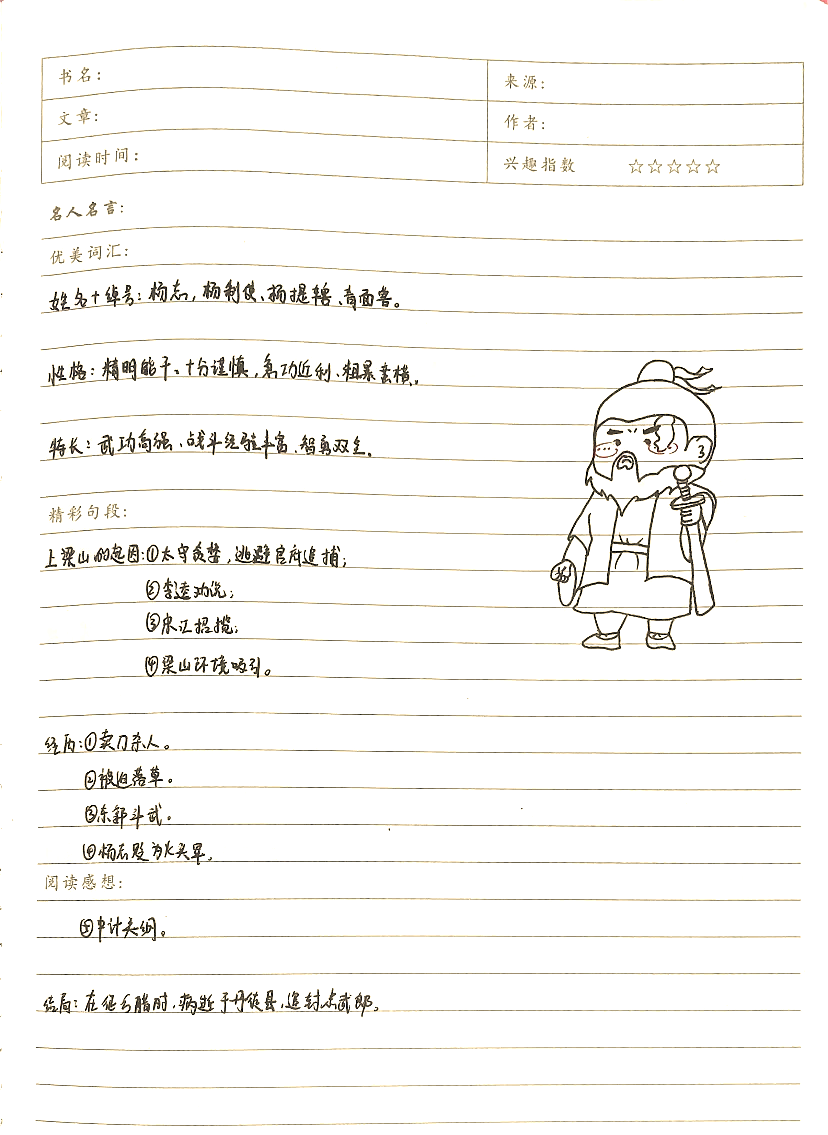 书名：
来源：
文章：
作者：
阅读时间：
兴趣指数 ☆☆☆☆☆
名人名言：
优美词汇：
姓名+绰号：杨志，杨制使、杨提辖、青面兽。
性格：精明能干、十分谨慎，急功近利、粗暴蛮横。
特长：武功高强、战斗经验丰富、智勇双全。
精彩句段：
上梁山的起因：①太守责整，逃避官府追捕；
②李逵劝说；
③宋江招揽；
④梁山环境吸引。
经历：①卖刀杀人。
②被迫落草。
③东郭斗武。
④杨志贬为火头军。
阅读感想：
⑤中计失纲。
结局：在征方腊时，病逝于丹徒县，追封忠武郎。